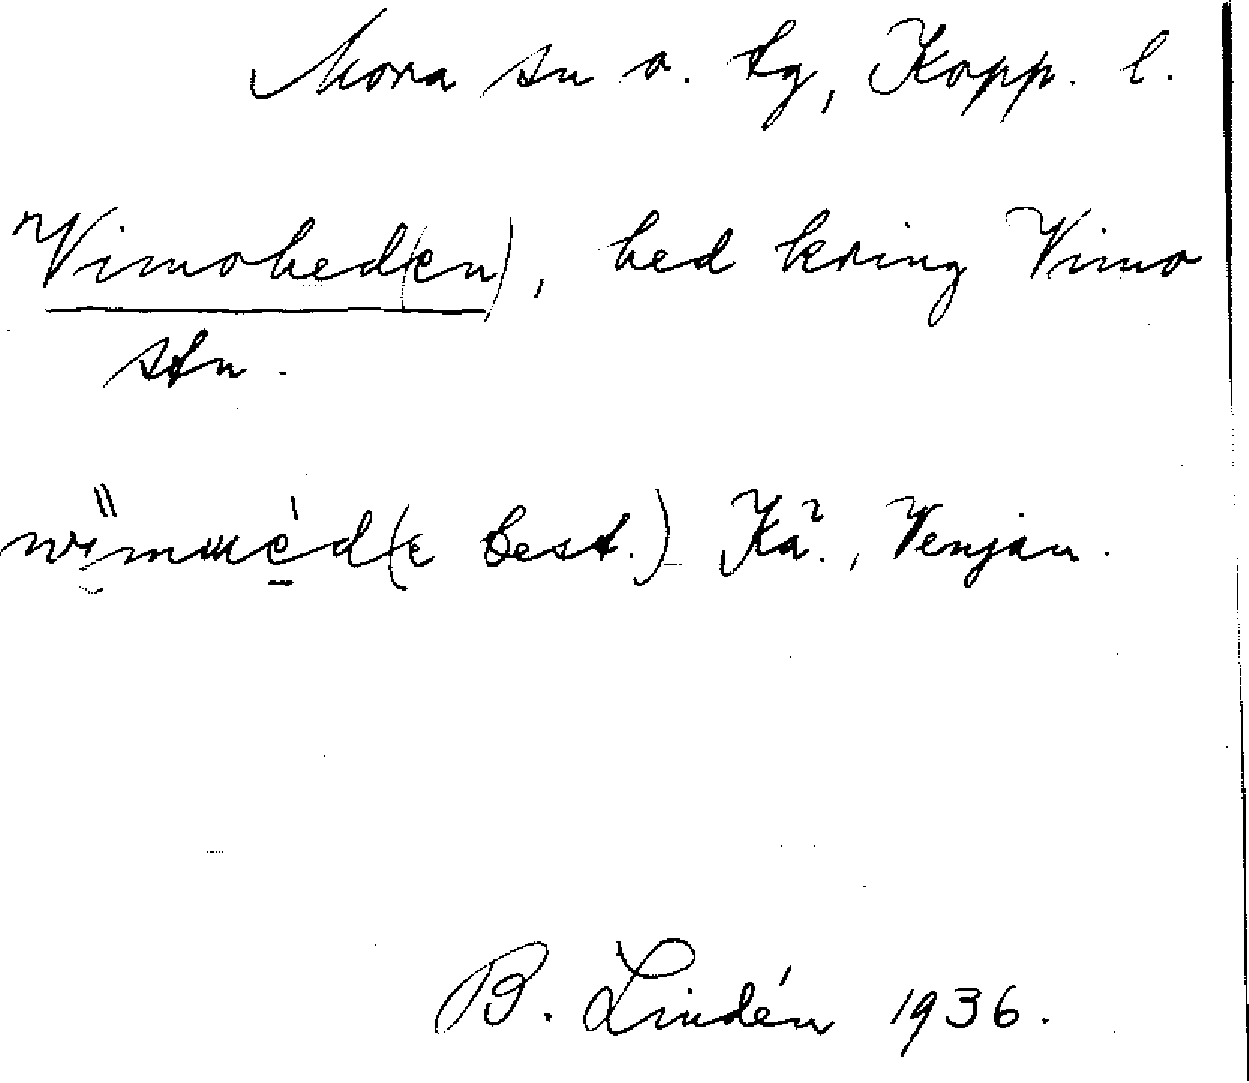 Mora sn o. tg, Kopp. l.
Vimoheden), hed kring Vimo
stn.
Best.) Kå?., Venjan.
B. Lindén 1936.